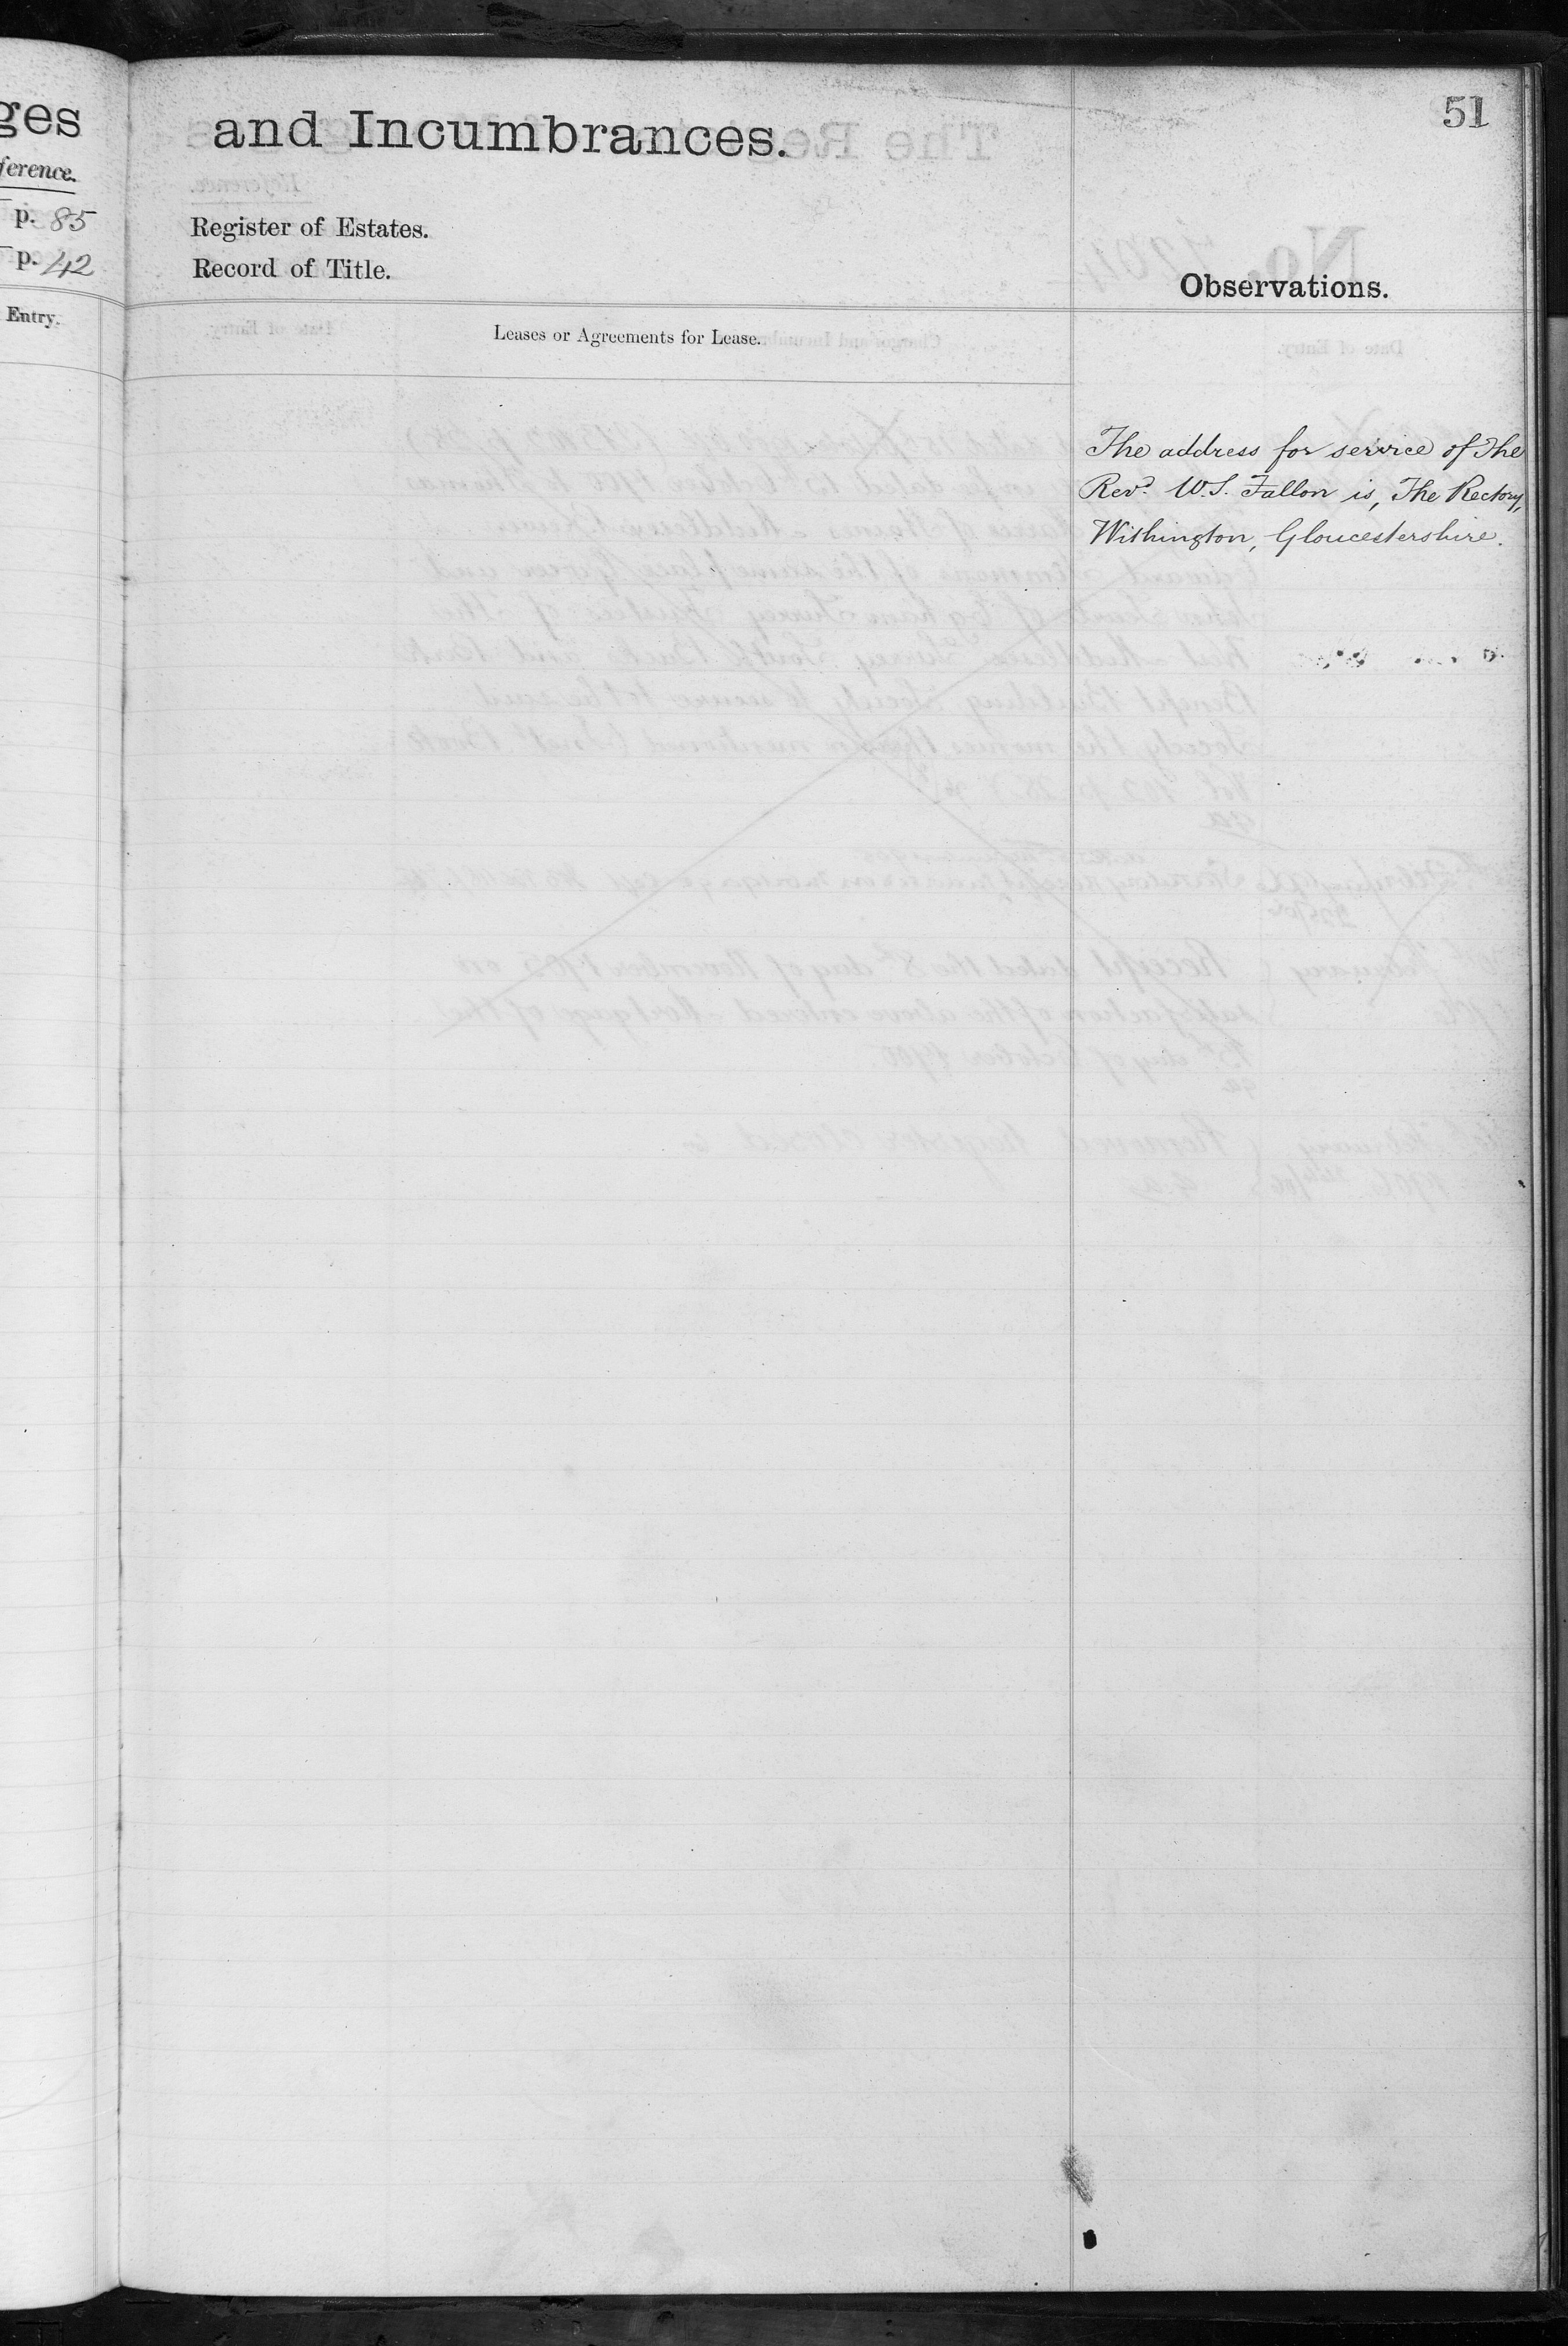 ges
ference.
p. 85
p. 42
Entry.
51
and Incumbrances.
Register of Estates.
Record of Title.
Observations.
Leases or Agreements for Lease.
The address for service of The
Revd. W.S. Fallon is, The Rectory,
Withington, Gloucestershire.